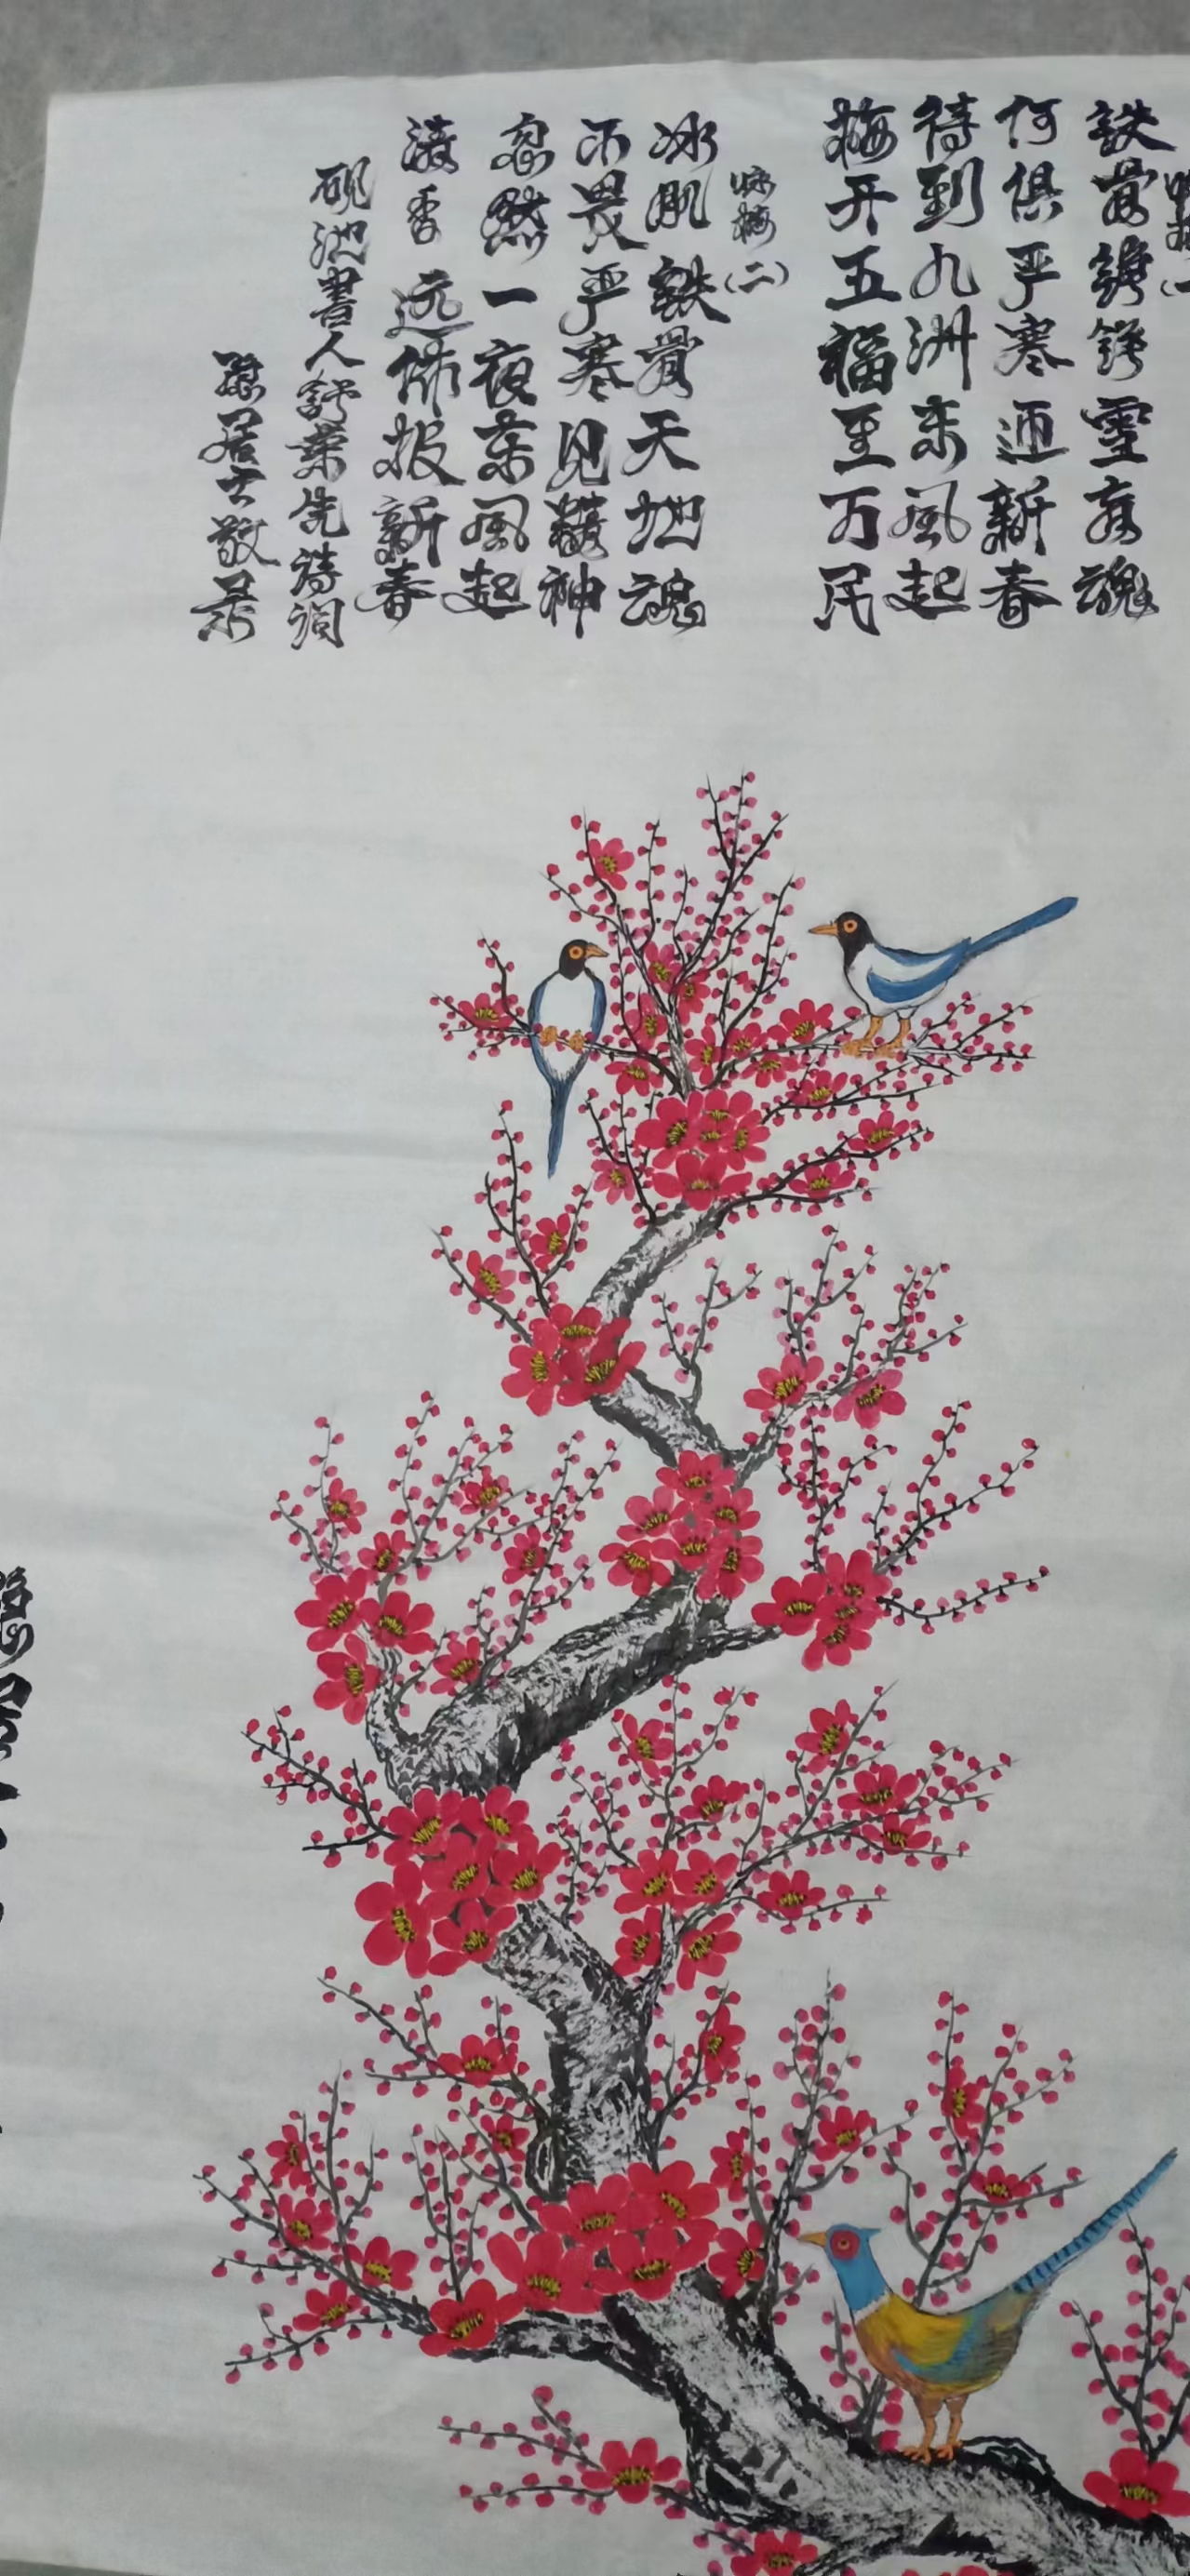 咏梅（一
鉄骨铮铮雪魂
何俱严寒迊新春
待到九洲东风起
梅开五福至万民
咏梅（二）
冰肌鉄骨天地魂
不畏严寒见精神
忽然一夜东风起
清香远佈报新春
砚池書人舒荣先诗词
居士敬录